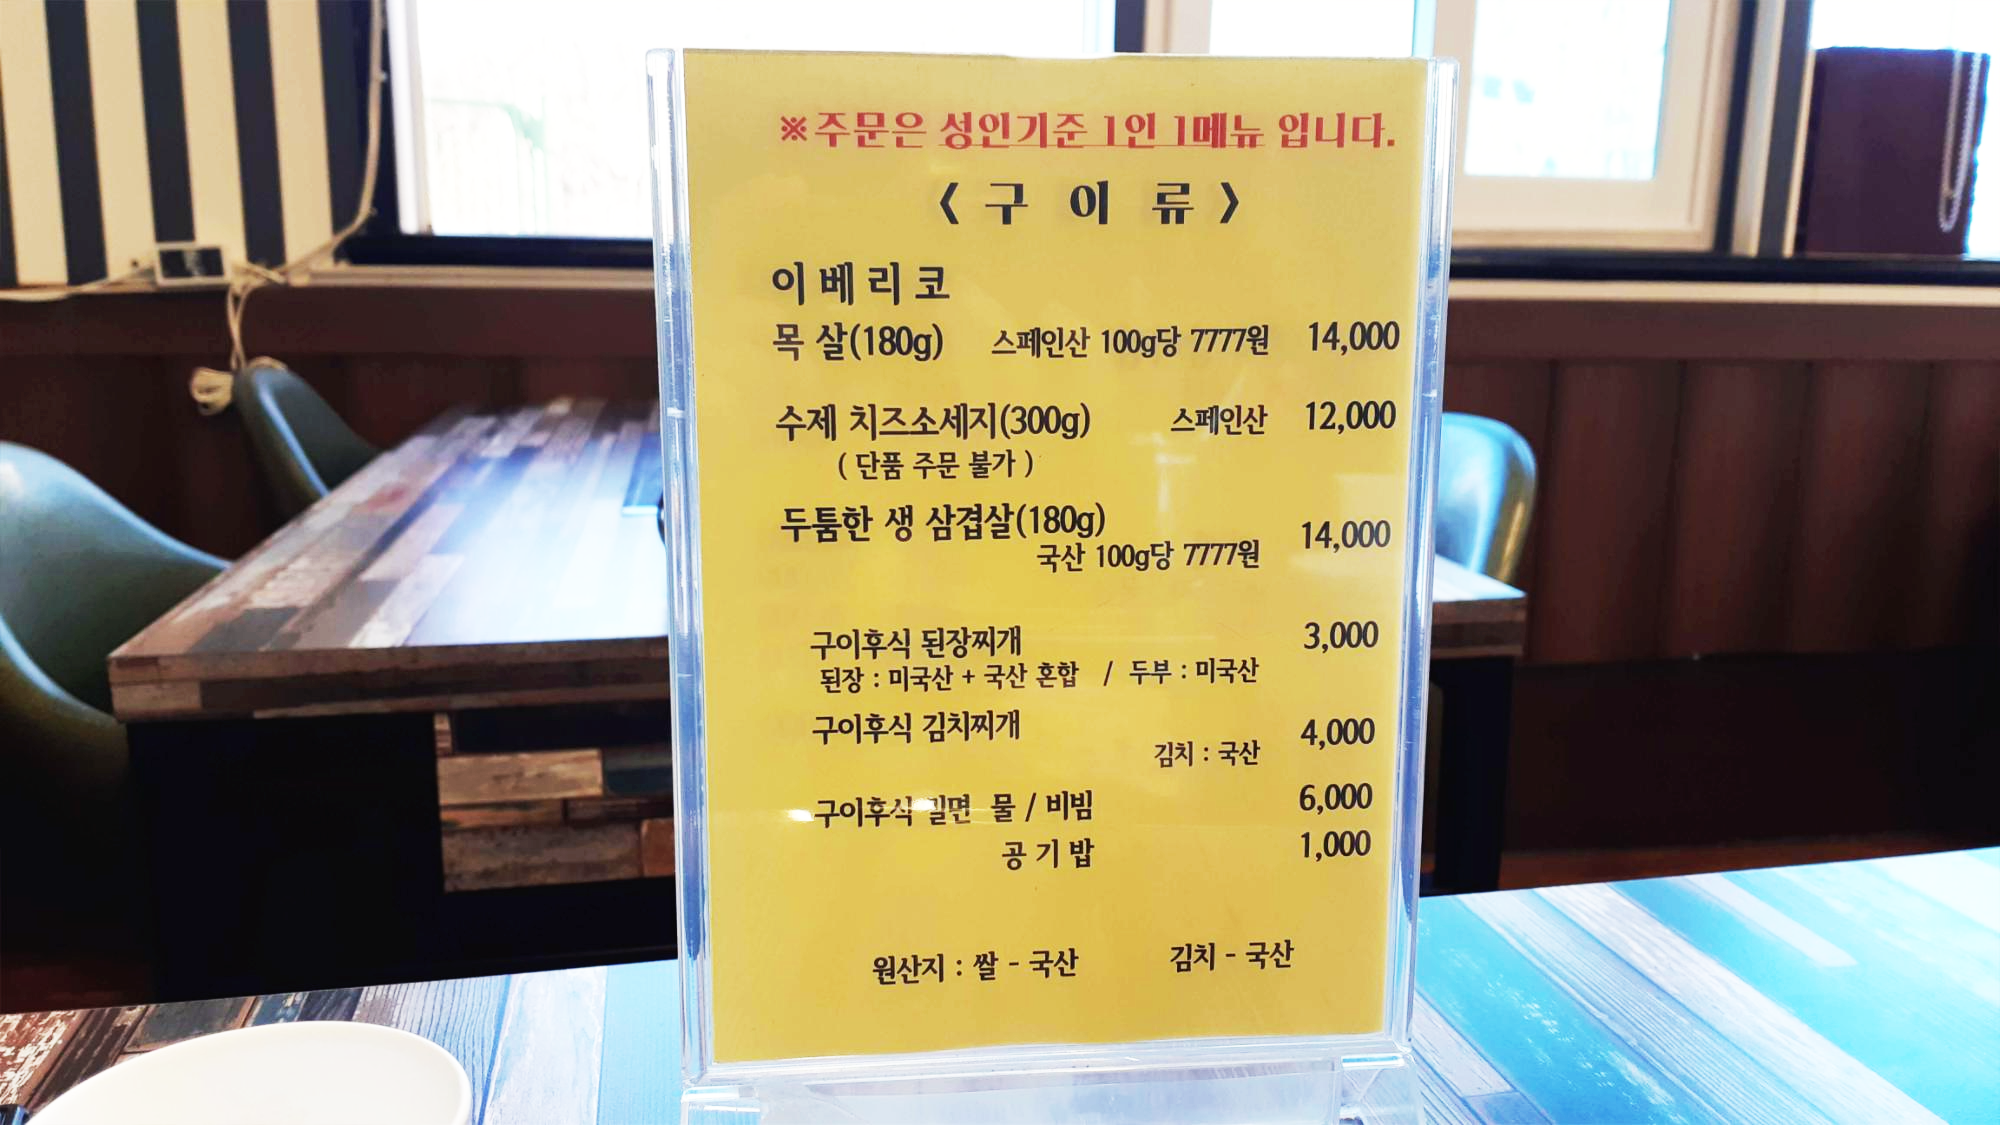 ※주문은 성인기준 1인 1메뉴 입니다.
< 구 이 류 >
이 베 리 코
목 살(180g) 스페인산 100g당 7777원 14,000
수제 치즈소세지(300g) 스페인산 12,000
( 단품 주문 불가 )
두툼한 생 삼겹살(180g) 14,000
국산 100g당 7777원
구이후식 된장찌개 3,000
된장 : 미국산 + 국산 혼합 / 두부 : 미국산
구이후식 김치찌개 4,000
김치 : 국산
구이후식 밀면 물 / 비빔 6,000
공 기 밥 1,000
원산지 : 쌀 - 국산 김치 - 국산